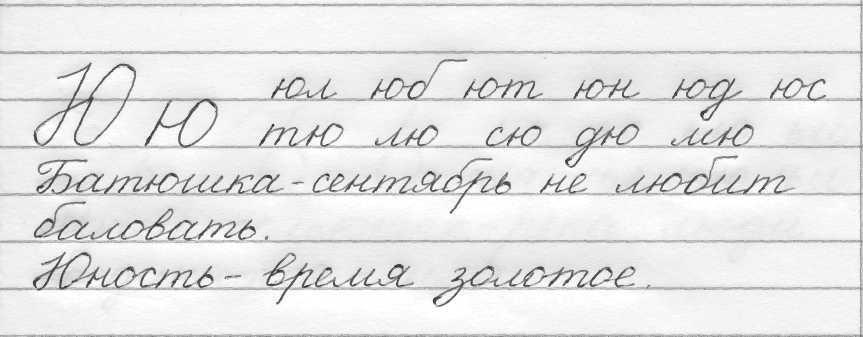 Ю юл юб ют юн юд юс
ю тю лю сю дю мю
Батюшка-сентябрь не любит
баловать.
Юность- время золотое.